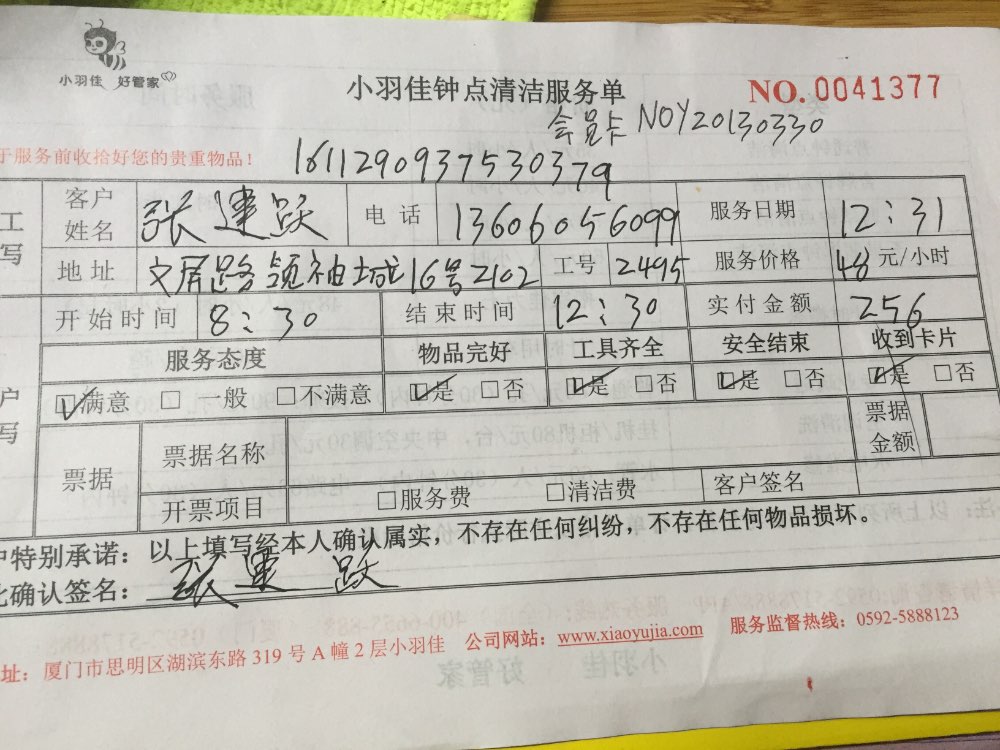 小羽佳 好管家
小羽佳钟点清洁服务单
NO.0041377
会员卡 NOY20130330
于服务前收拾好您的贵重物品！
1611290937530379
工
写
客户
姓名
张建跃
电 话
13606056099
服务日期
12:31
地 址
文屏路领袖城16号2102
工号
2495
服务价格
48元/小时
开始时间
8:30
结束时间
12:30
实付金额
256
服务态度
物品完好
工具齐全
安全结束
收到卡片
户
写
☑满意 □ 一般 □不满意
☑是 □否
☑是 □否
☑是 □否
☑是 □否
票据
票据名称
票据
金额
开票项目
□服务费 □清洁费
客户签名
户特别承诺：以上填写经本人确认属实，不存在任何纠纷，不存在任何物品损坏。
此确认签名：张建跃
址：厦门市思明区湖滨东路 319 号 A 幢 2 层小羽佳 公司网站：www.xiaoyujia.com 服务监督热线：0592-5888123